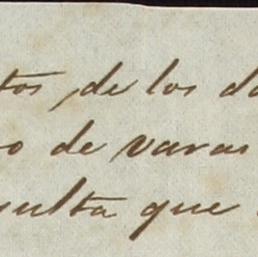 tos, de los da
o de varas
sulta que